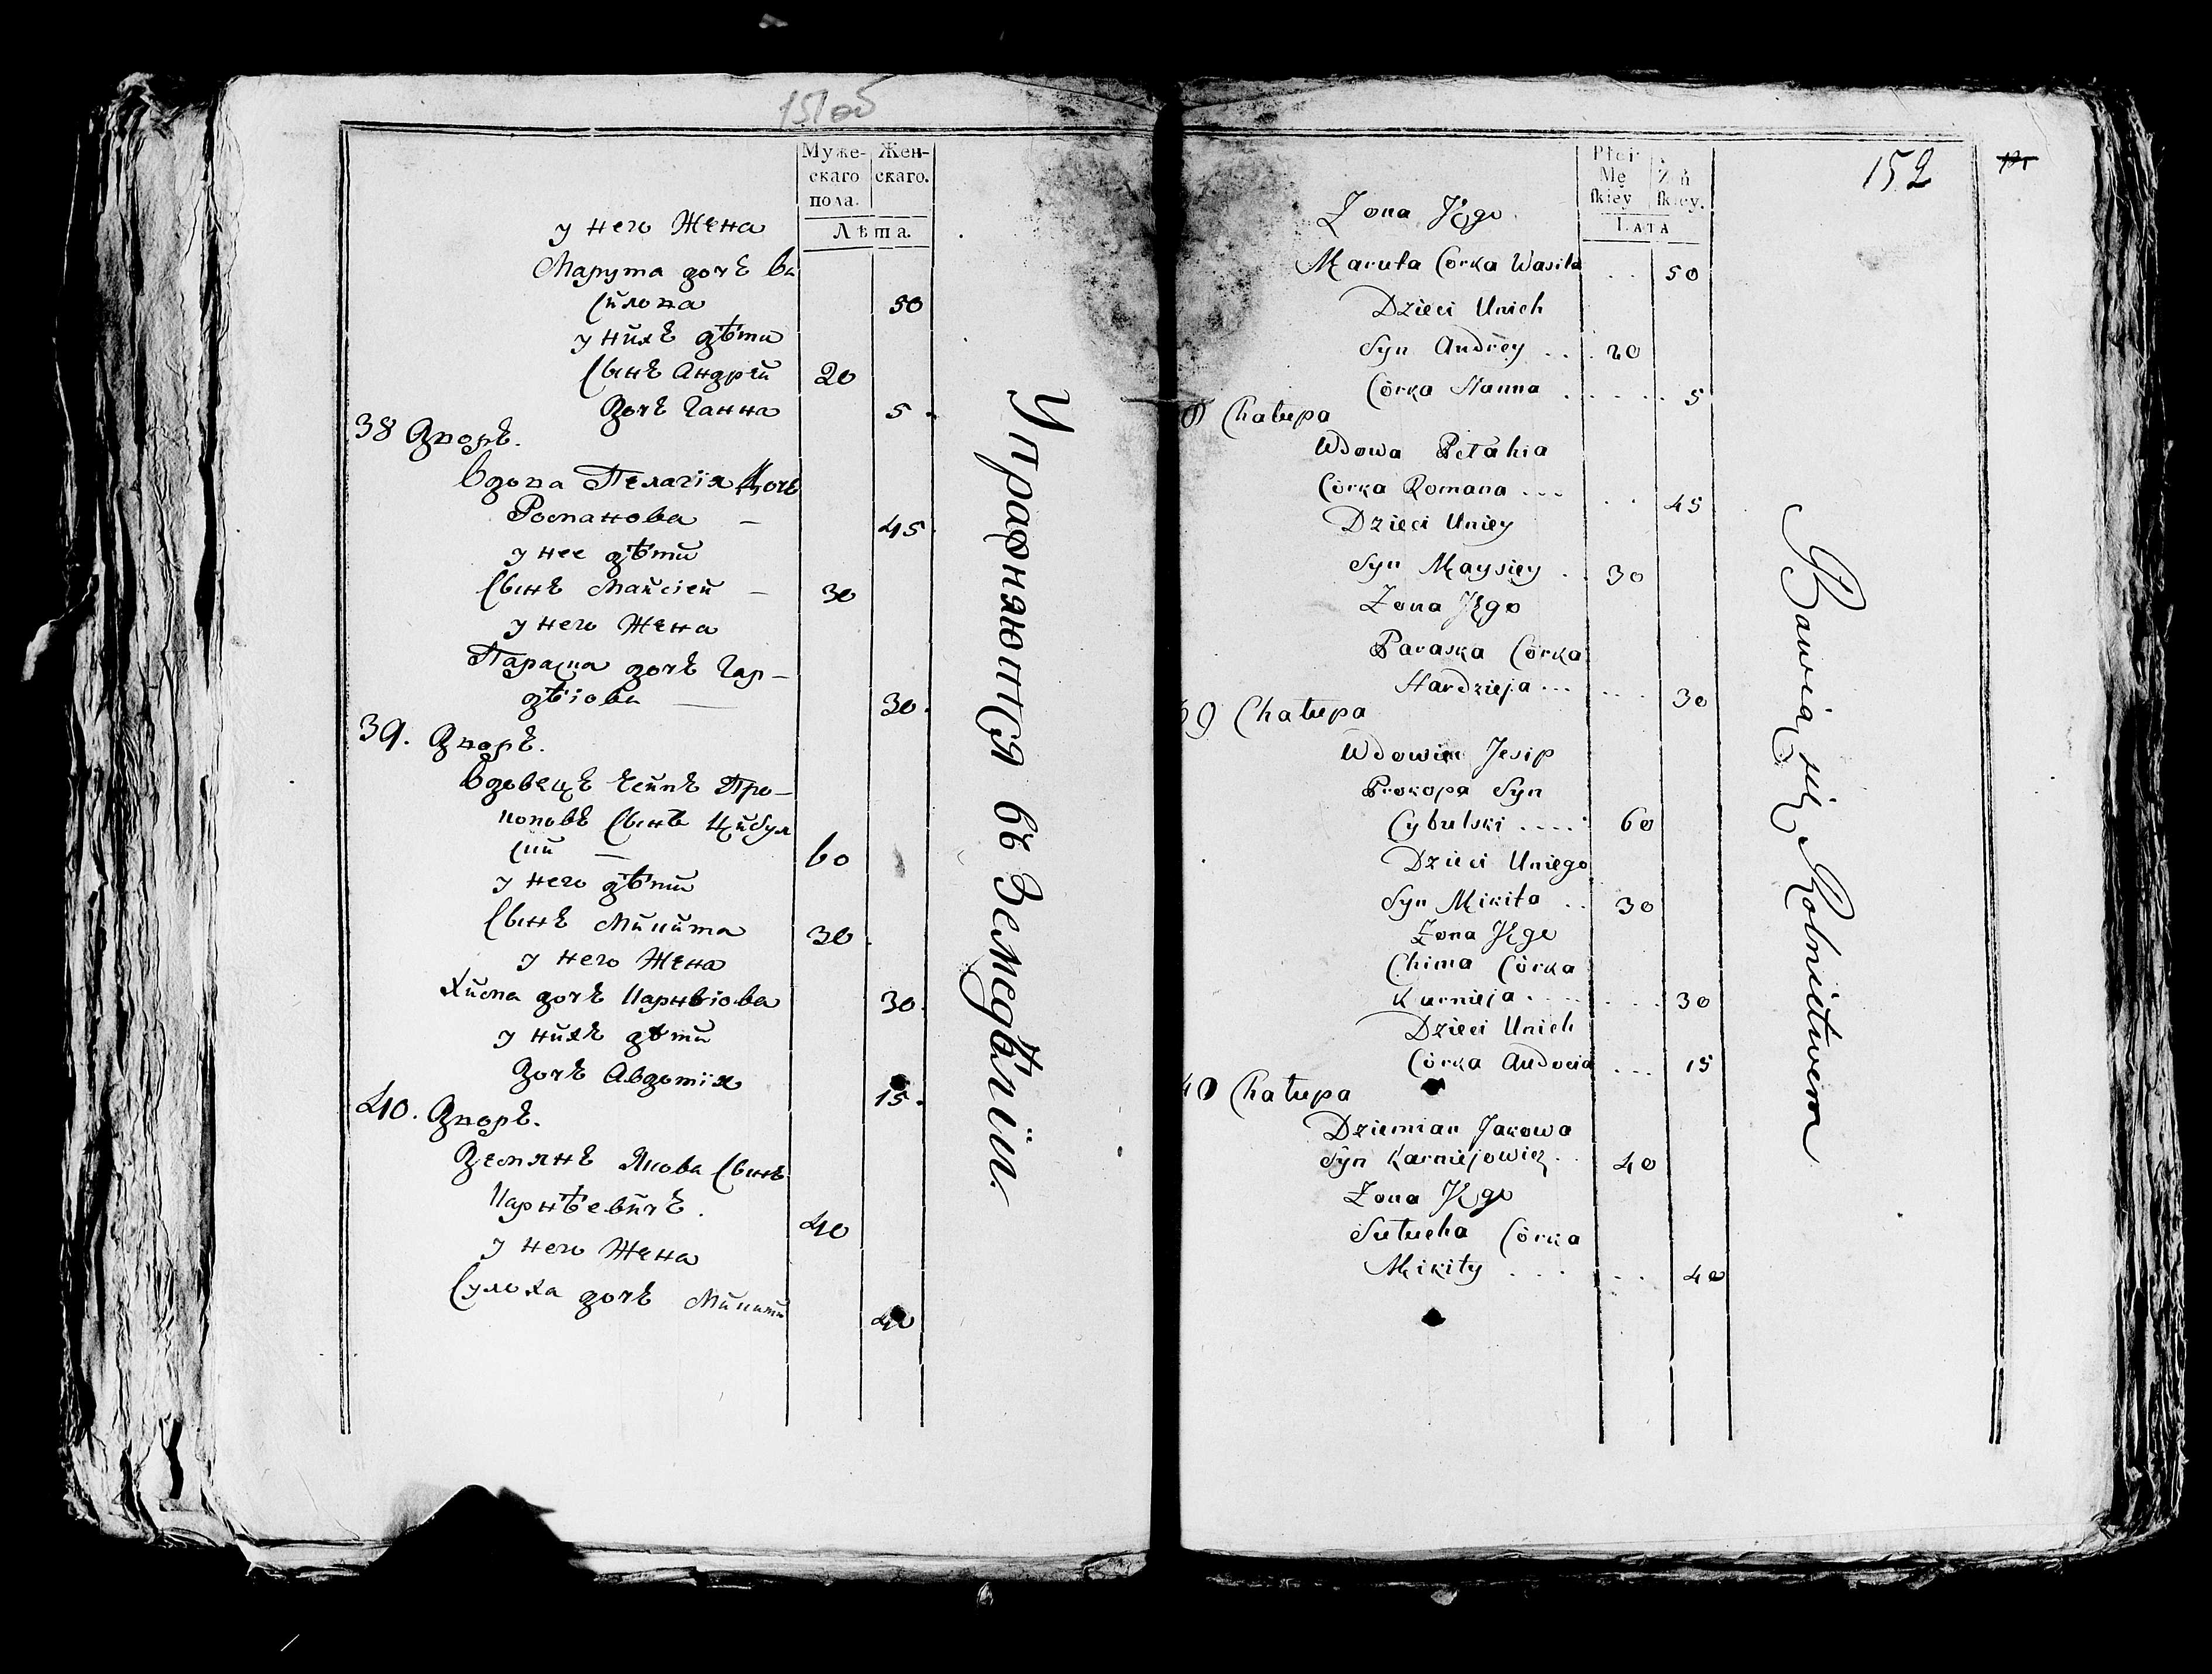 151 об
Муже-
скаго
пола.
Жен-
скаго.
Лѣта.
у него Жена
Марута дочь Ва
силова 50
у нихъ дѣти
Сынъ Андрей 20
Дочь Ганна 5
38 Дворъ.
Вдова Пелагія Дочь
Романова – 45
у нее дѣти
Сынъ Майсіей – 30
у него Жена
Параска дочь Гар–
дѣіова 30
39. Дворъ.
Вдовецъ Есипъ Про–
коповъ Сынъ Цибул
ский 60
у него дѣти
Сынъ Микита 30
у него Жена
Хима дочь Карнѣіова 30
у нихъ дѣти
Дочь Авдотія 15
40. Дворъ.
Демянъ Якова Сынъ
Карнѣевичъ. 40
у него Жена
Сулюха дочь Микити 40
Упражняются въ Земледѣліи.
152
Płci
Mę
skiey
skiey.
LATA
Zona Jego
Maruta Corka Wasila .. 50
Dzieci Unich
Syn Andrey ... 20
Córka Hanna ..... 5
8 Chałupa
Wdowa Pełahia
Córka Romana ... .. 45
Dzieci Uniey
Syn Maysiey .. 30
Zona Jego
Paraska Córka
Hardzieja ... ... 30
39 Chałupa
Wdowiec Jesip
Prokopa Syn
Cybulski .... 60
Dzieci Uniego
Syn Mikita .. 30
Zona Jego
Chima Córka
Karnieja .... ... 30
Dzieci Unich
Córka Audocia ... 15
40 Chałupa
Dziemian Jakowa
Syn Karniejowicz .. 40
Zona Jego
Sulucha Córka
Mikity ... .. 40
Bawią się Rolnictwem